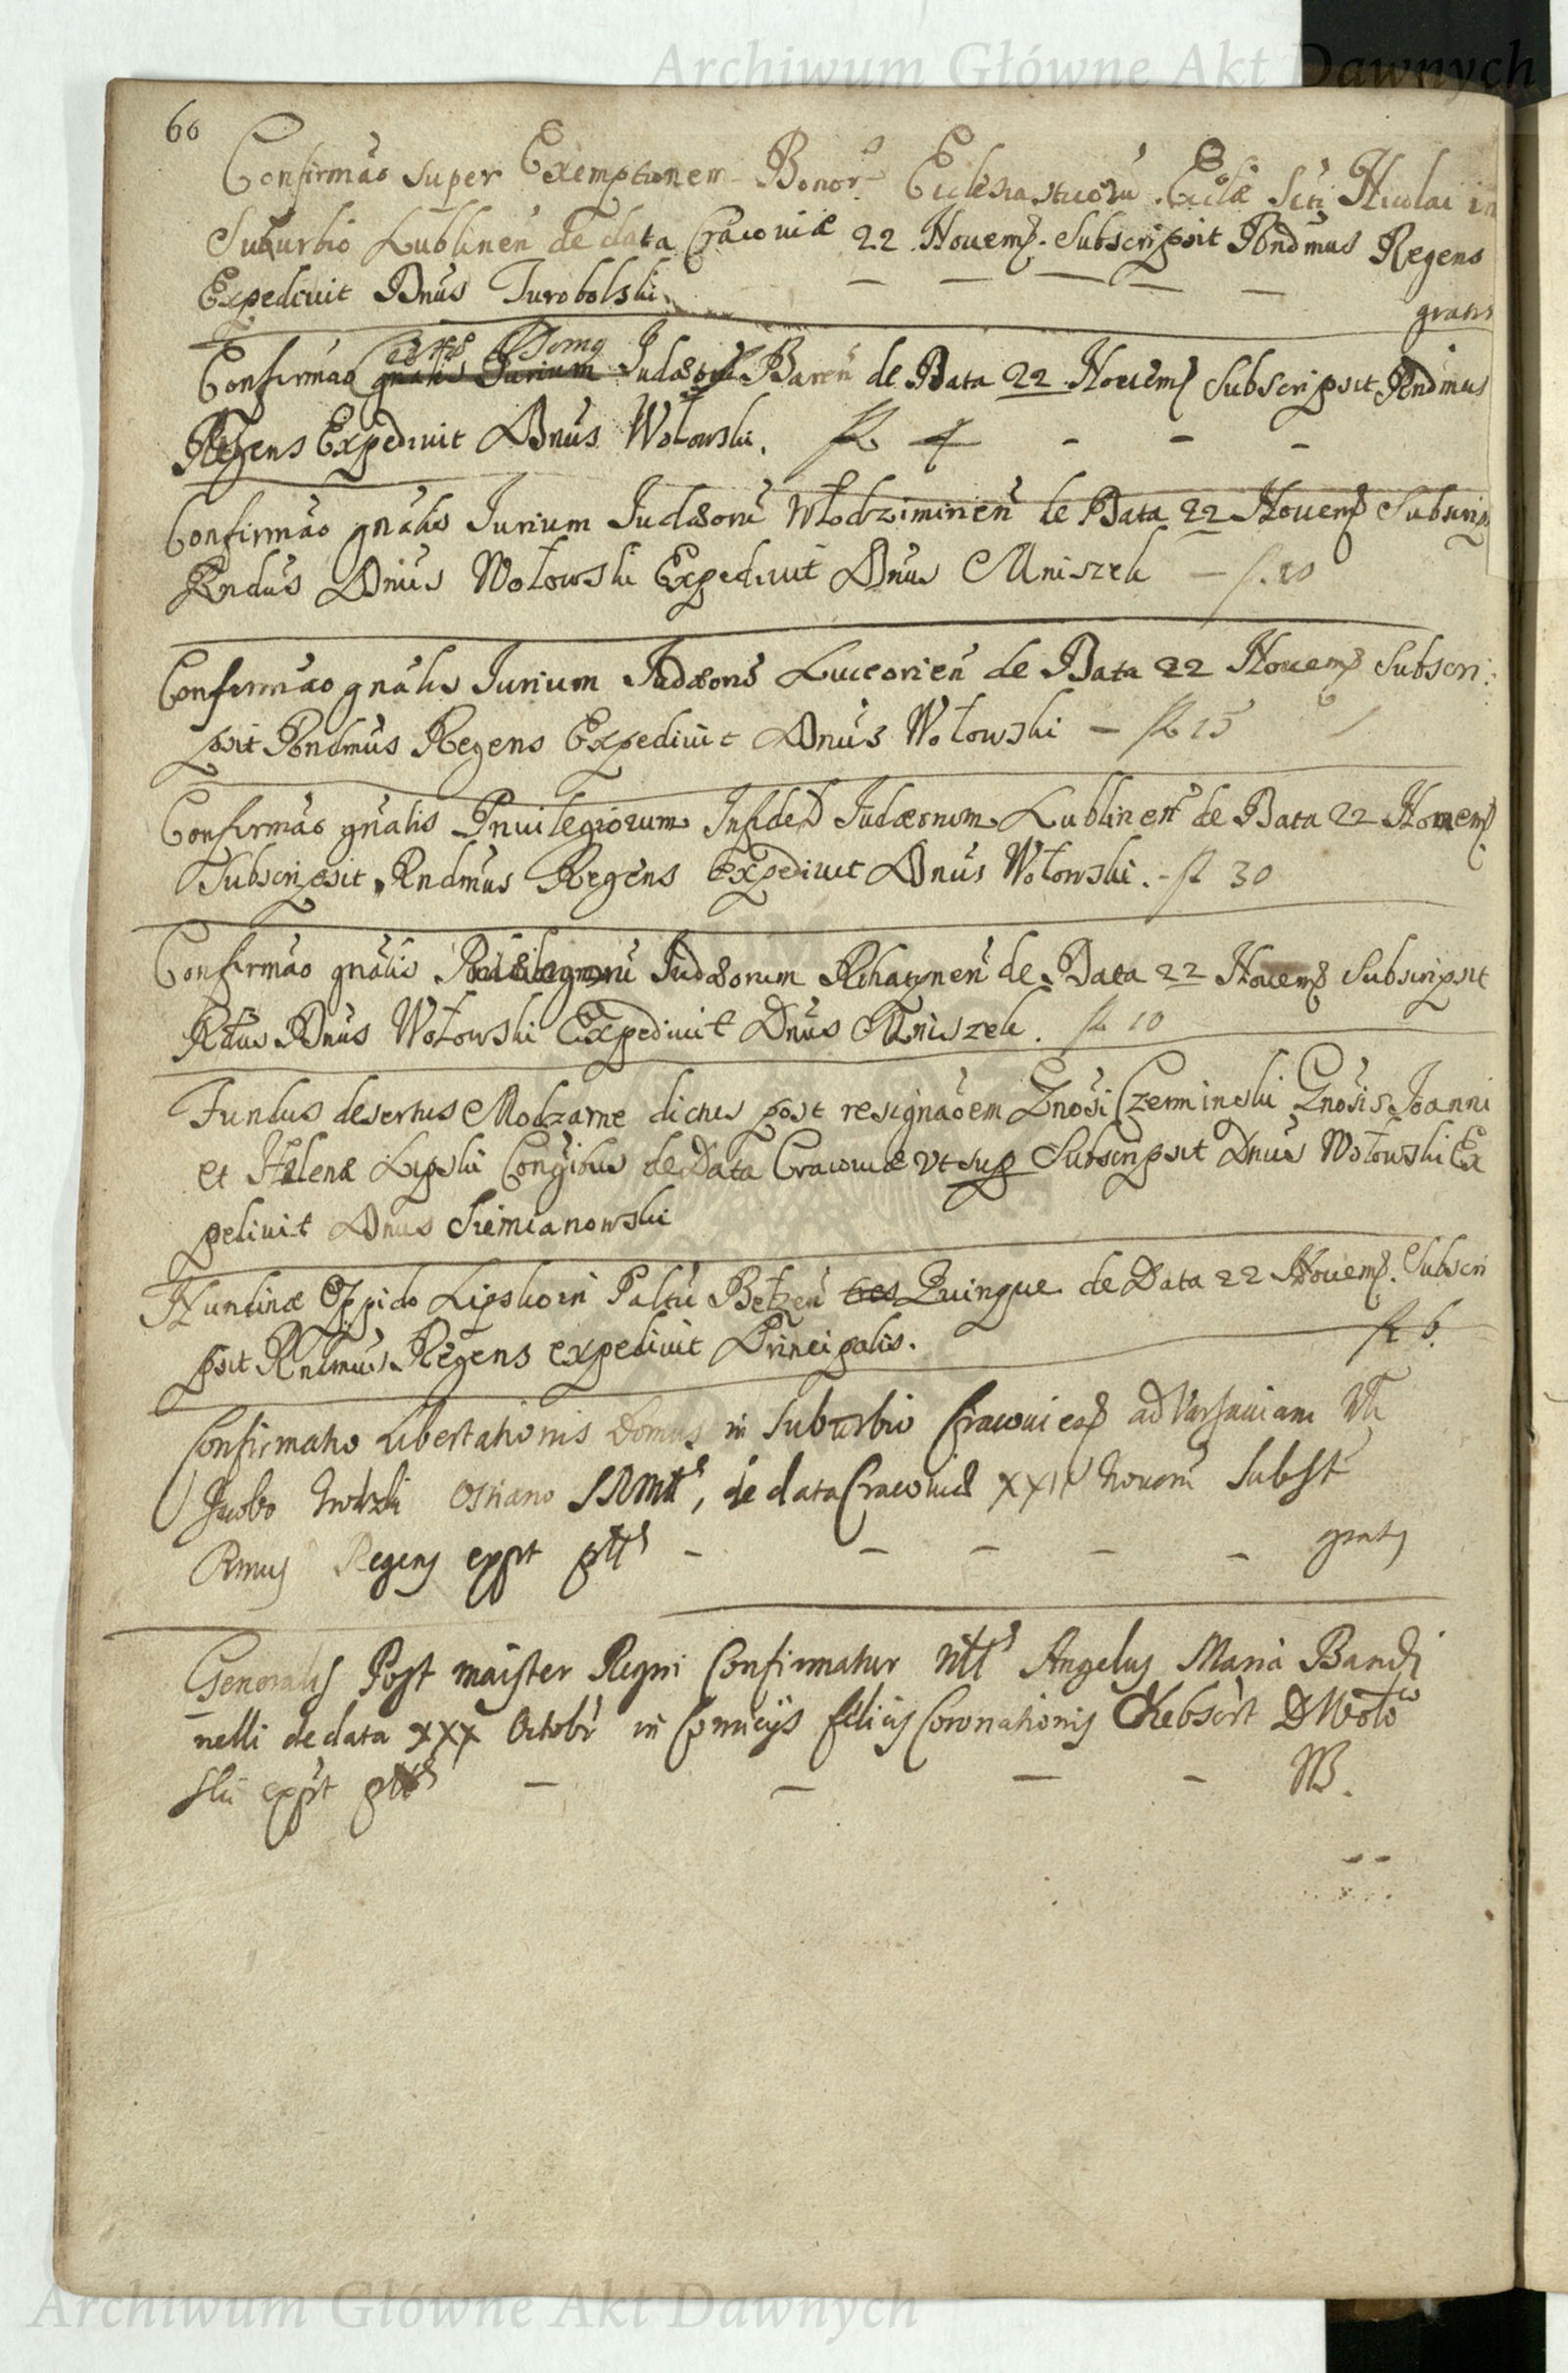 Archiwum Główne Akt Dawnych
60
Confirmao super Exemptionem Bonor Ecclesiasticoru Ecclae Scti Nicolai in
Suburbio Lublinen de data Cracoviae 22 Novemb. Subscripsit Rndmus Regens
Expedivit Dnus Turobolski gratis
Confirmao gnalis Jurium Judaeoru Baren de Data 22 Novemb Subscripsit Rndmus
Regens Expedivit Dnus Wołowski. fl 4
Confirmao gnalis Jurium Judaeoru Włodzimirien de Data 22 Novemb Subscrip
Rndus Dnus Wołowski Expedivit Dnus Mniszek – f. 20
Confirmao gnalis Jurium Judaeoru Luceorien de Data 22 Novemb Subscri:
psit Rndmus Regens Expedivit Dnus Wołowski – fl 15
Confirmao gnalis Privilegiorum Infid Judaeorum Lublinen de Data 22 Novemb
Subscripsit Rndmus Regens Expedivit Dnus Wołowski. – fl 30
Confirmao gnalis Judaeorum Rohatynen de Data 22 Novemb Subscripsit
Rndus Dnus Wołowski Expedivit Dnus Mniszek. fl 10
Fundus desertus Modzarne dictus post resignaoem Gnosi Czerminski Gnosis Joanni
et Helenae Lipski Congibus de Data Cracoviae ut sup Subscripsit Dnus Wołowski Ex
pedivit Dnus Siemianowski
Nundinae Oppido Lipsko in Paltu Bełzen tres Quinque de Data 22 Novemb. Subscri
psit Rndmus Regens expedivit Principalis. fl 6.
Confirmatio Libertationis Domus in Suburbio Cracovien ad Varsaviam
Jacobo Ostiario SRMtis, de data Cracoviae XXII Novem Subst
Rmus Regens expt gratis
Generalis Post maister Regni Confirmatur Angelus Maria Bandi
nelli de data XXX Octobr in Comicijs felicis Coronationis D Woło
ski expt NB.
Archiwum Główne Akt Dawnych